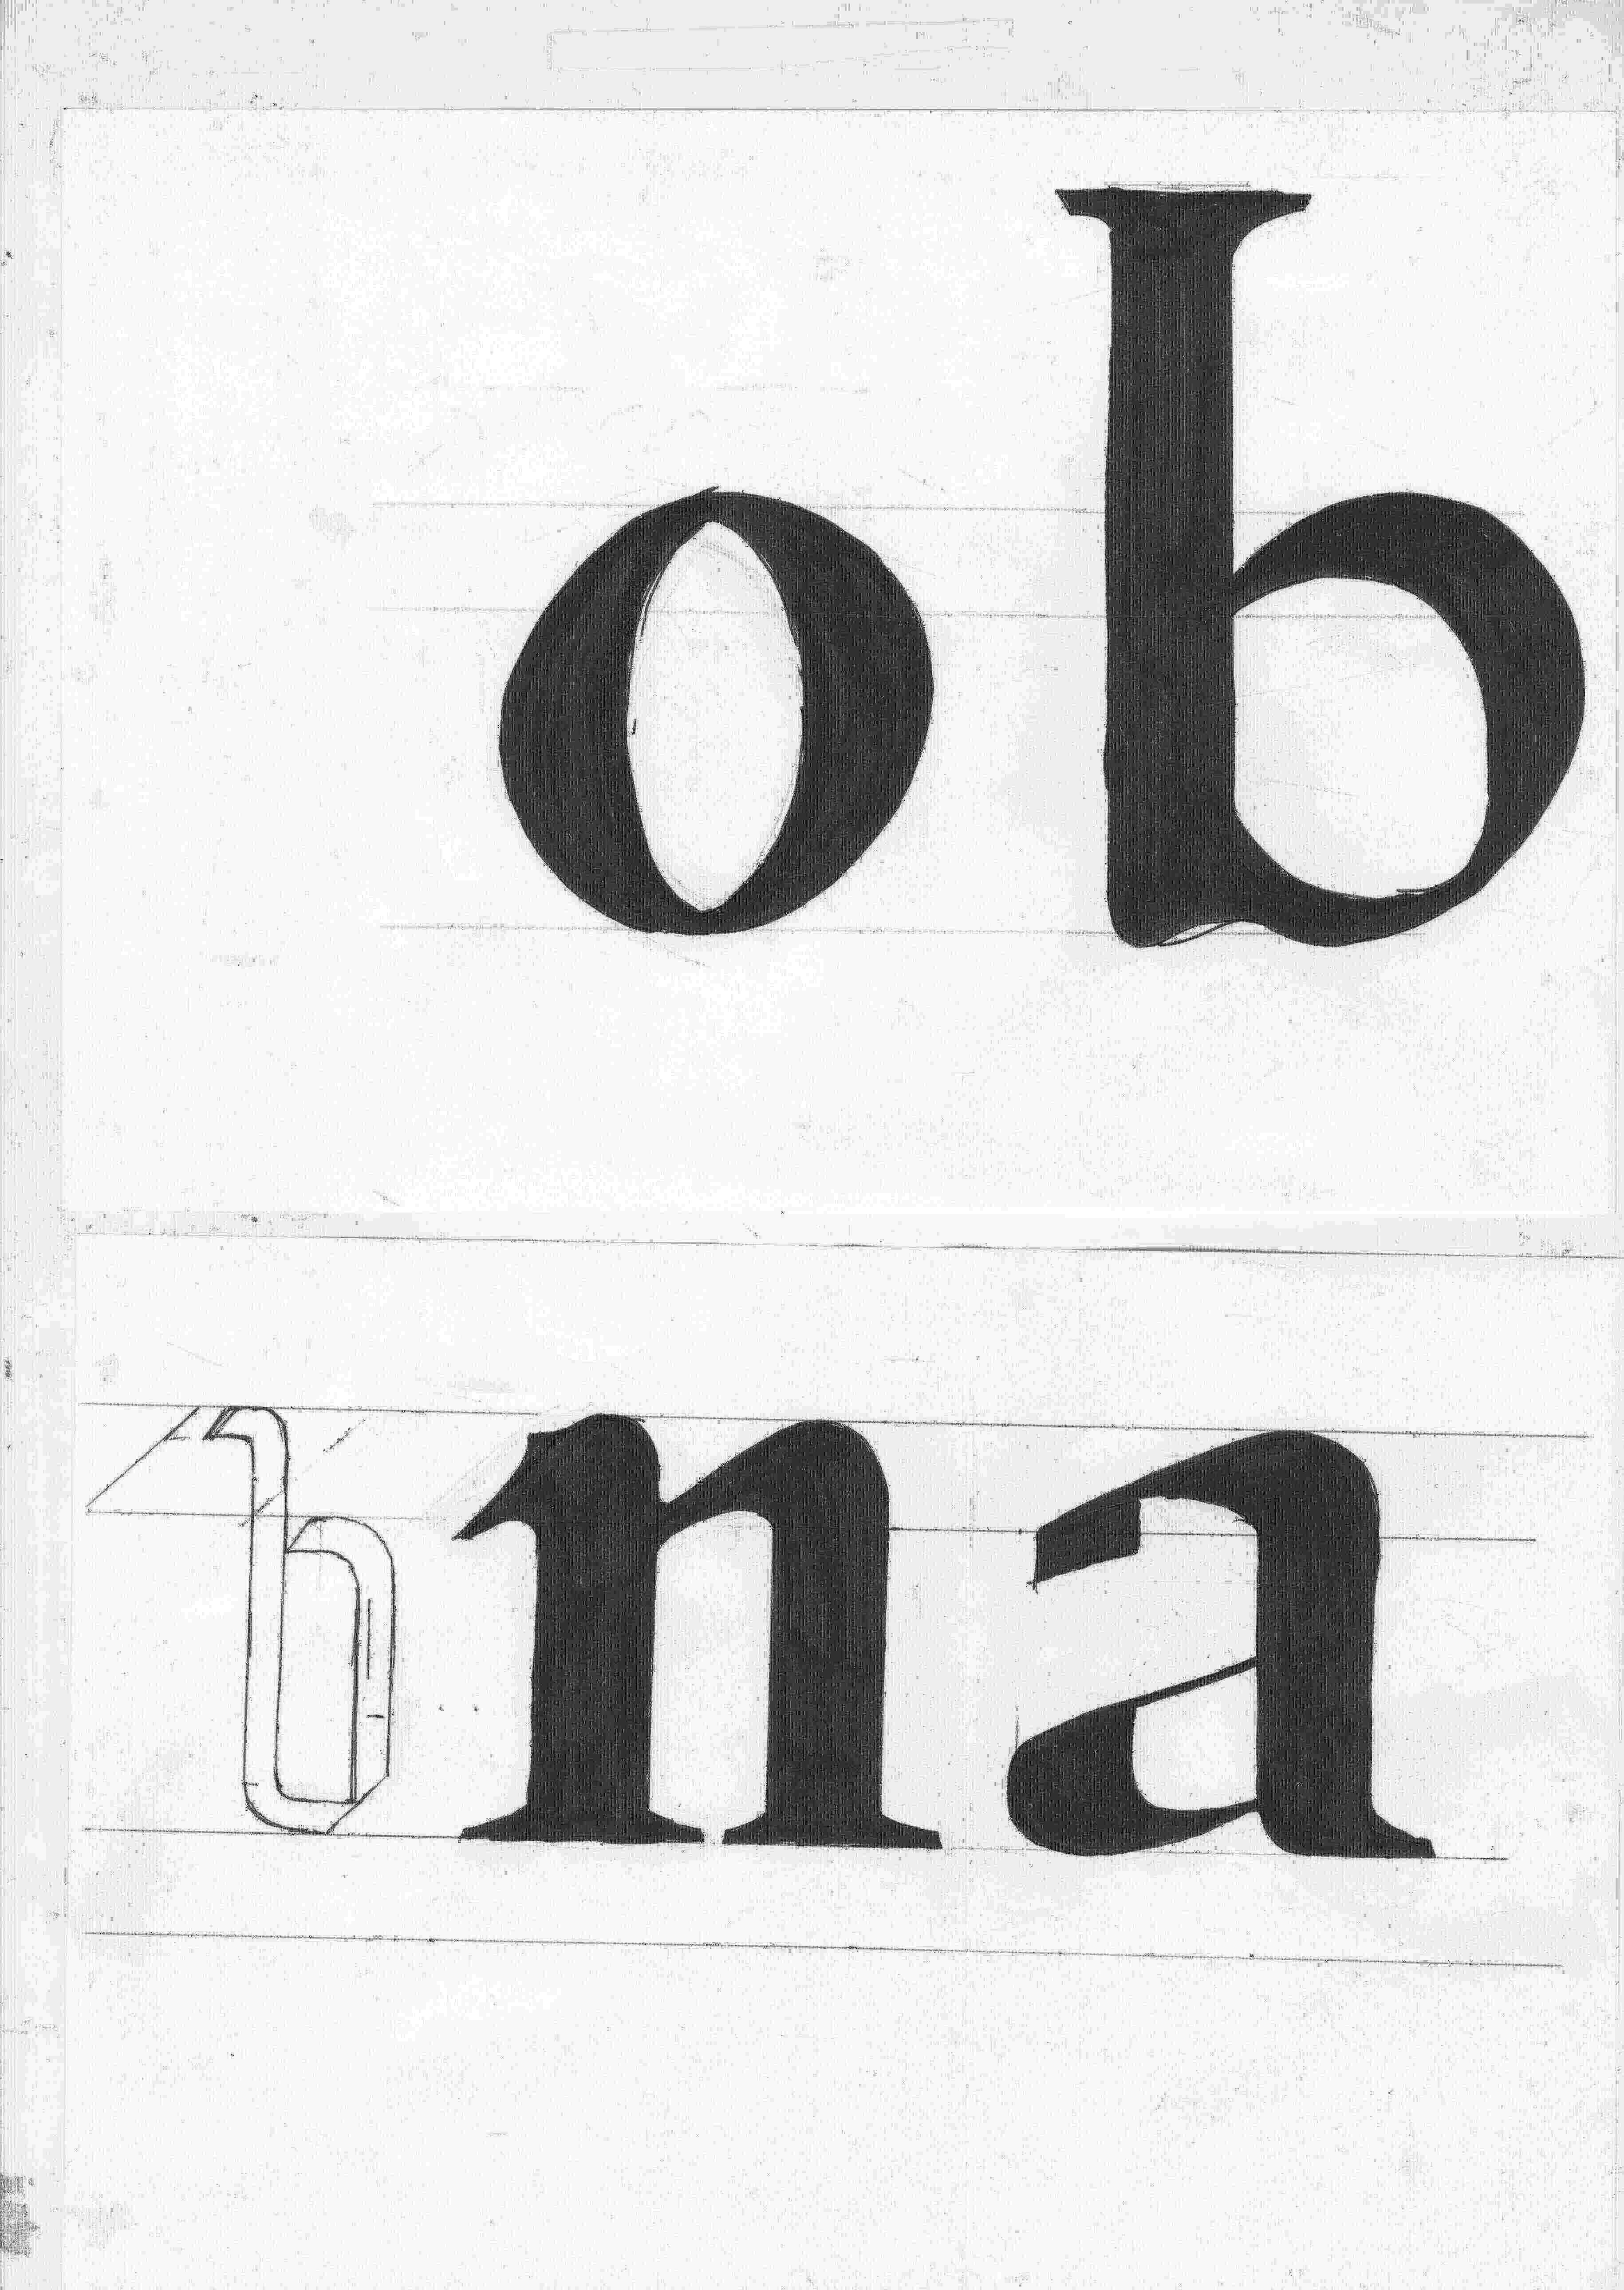 o b
b n a